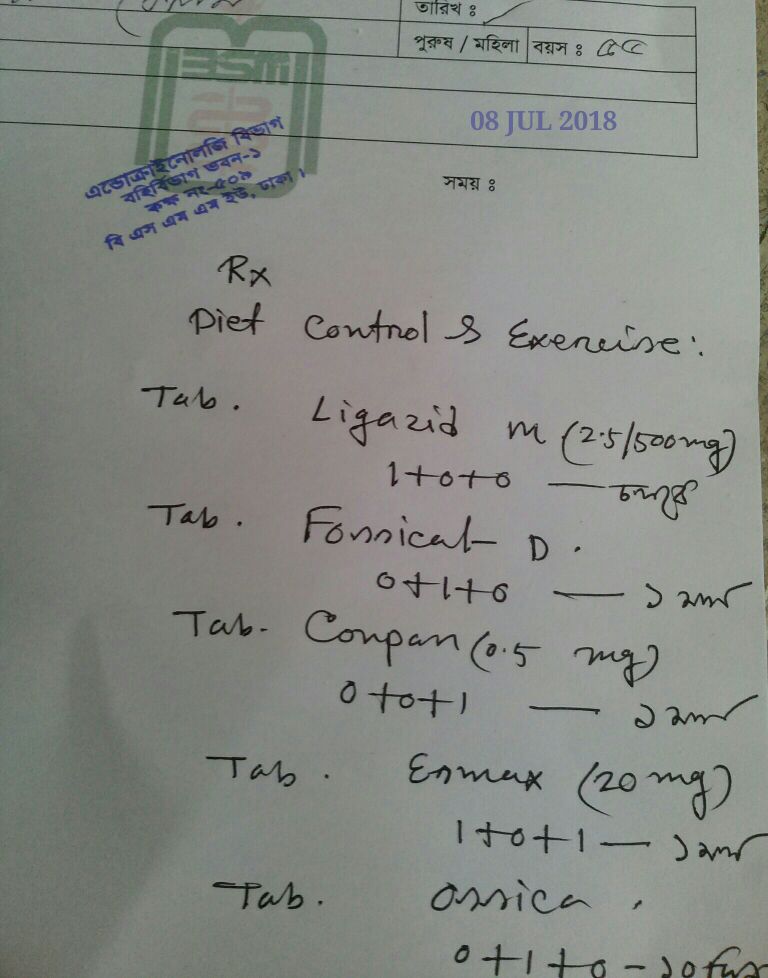 তারিখ ঃ
পুরুষ / মহিলা বয়স ঃ ৫৫
08 JUL 2018
BSM
এন্ডোক্রাইনোলজি বিভাগ
বহির্বিভাগ ভবন-১
কক্ষ নং-৫০৯
বি এস এম এম ইউ, ঢাকা।
সময় ঃ
Rx
Diet Control & Exercise:
Tab. Ligazid M (2.5/500mg)
1+0+0 — চলবে
Tab. Fossical-D.
0+1+0 — ১ মাস
Tab. Conpan (0.5 mg)
0+0+1 — ১ মাস
Tab. Esmax (20 mg)
1+0+1 — ১ মাস
Tab. Ossica.
0+1+0 –